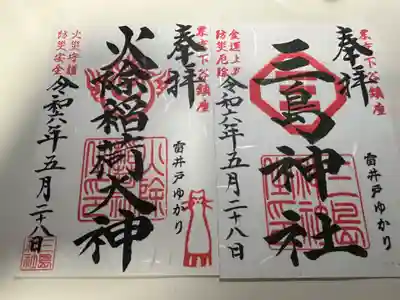 東京下谷鎮座
奉拝
三島神社
三島神社
雷井戸ゆかり
令和六年五月二十八日
金運上昇
防災厄除
東京下谷鎮座
奉拝
火除稲荷大神
雷井戸ゆかり
令和六年五月二十八日
火災守護
防災安全
三島